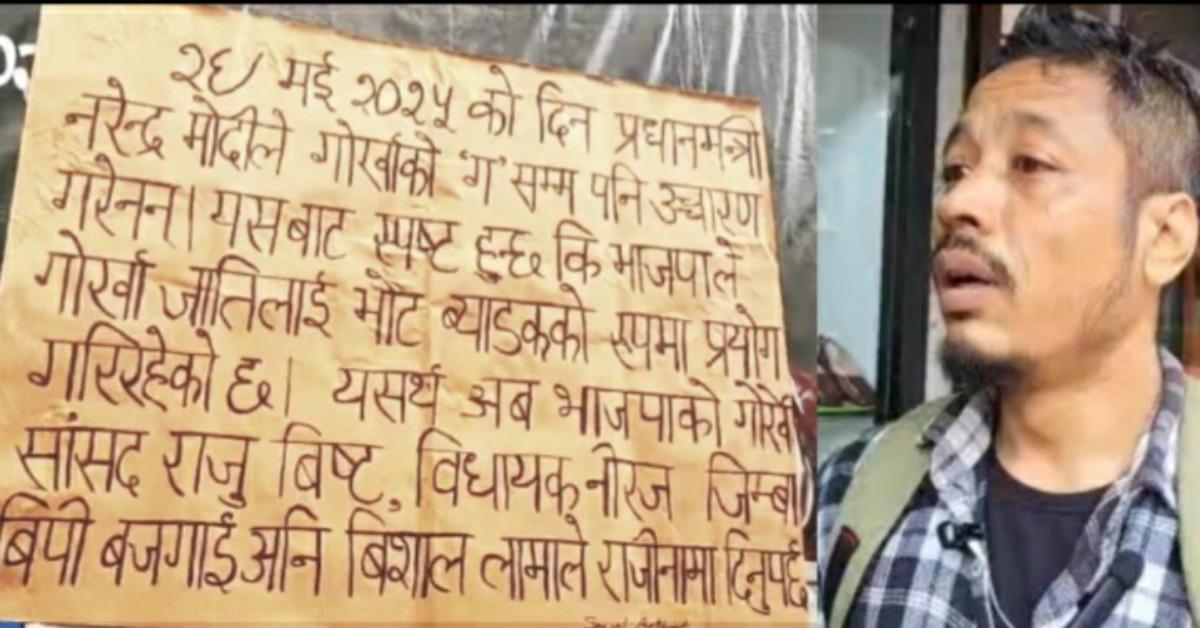 २६ मई २०२५ को दिन प्रधानमन्त्री
नरेन्द्र मोदीले गोर्खाको 'ग' सम्म पनि उच्चारण
गरेनन। यसबाट स्पष्ट हुन्छ कि भाजपाले
गोर्खा जातिलाई भोट ब्याङकको रुपमा प्रयोग
गरिरहेको छ। यसर्थ अब भाजपाको गोर्खे
सांसद राजु बिष्ट, विधायक नीरज जिम्बा
बिपी बजगाईं अनि बिशाल लामाले राजीनामा दिनुपर्छ